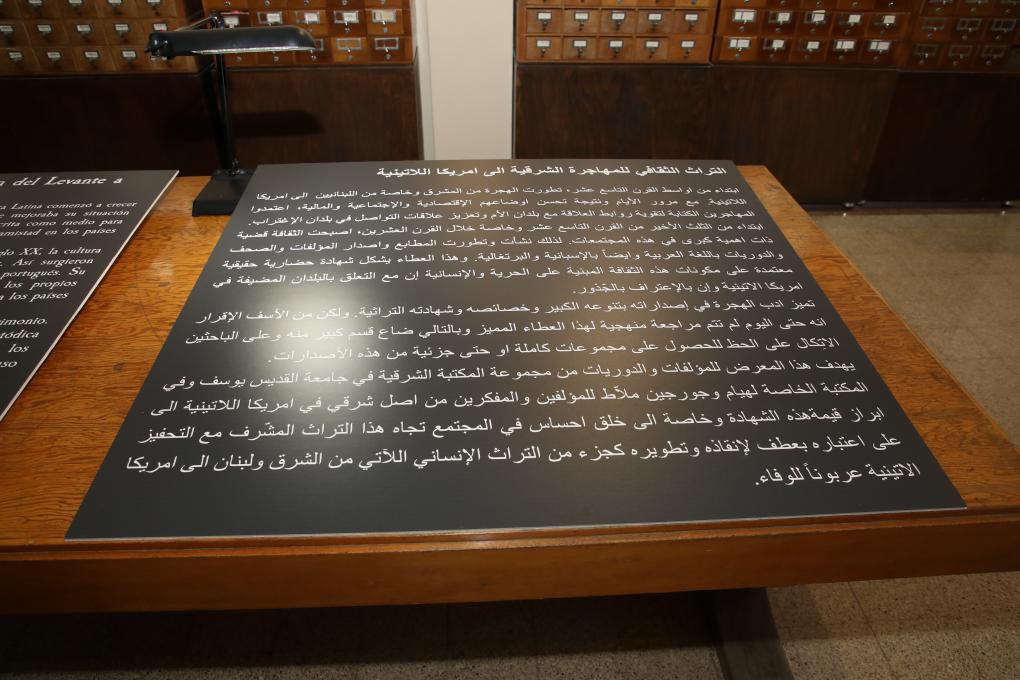 التراث الثقافي للمهاجرة الشرقية الى امريكا اللاتينية
ابتداء من اواسط القرن التاسع عشر، تطورت الهجرة من المشرق وخاصة من اللبنانيين الى امريكا
اللاتينية. مع مرور الأيام ونتيجة تحسن اوضاعهم الإقتصادية والإجتماعية والمالية، اعتمدوا
المهاجرين الكتابة لتقوية روابط العلاقة مع بلدان الأم وتعزيز علاقات التواصل في بلدان الإغتراب.
ابتداء من الثلث الأخير من القرن التاسع عشر وخاصة خلال القرن العشرين، اصبحت الثقافة قضية
ذات اهمية كبرى في هذه المجتمعات. لذلك نشأت وتطورت المطابع واصدار المؤلفات والصحف
والدوريات باللغة العربية وايضاً بالإسبانية والبرتغالية. وهذا العطاء يشكل شهادة حضارية حقيقية
معتمدة على مكونات هذه الثقافة المبنية على الحرية والإنسانية إن مع التعلق بالبلدان المضيفة في
امريكا الاتينية وإن بالإعتراف بالجذور.
تميز ادب الهجرة في إصداراته بتنوعه الكبير وخصائصه وشهادته التراثية. ولكن من الأسف الإقرار
انه حتى اليوم لم تتم مراجعة منهجية لهذا العطاء المميز وبالتالي ضاع قسم كبير منه وعلى الباحثين
الإتكال على الحظ للحصول على مجموعات كاملة او حتى جزئية من هذه الأصدارات.
يهدف هذا المعرض للمؤلفات والدوريات من مجموعة المكتبة الشرقية في جامعة القديس يوسف وفي
المكتبة الخاصة لهيام وجورجين ملاّط للمؤلفين والمفكرين من اصل شرقي في امريكا اللاتينية الى
ابراز قيمةهذه الشهادة وخاصة الى خلق احساس في المجتمع تجاه هذا التراث المشّرف مع التحفيز
على اعتباره بعطف لإنقاذه وتطويره كجزء من التراث الإنساني اللآتي من الشرق ولبنان الى امريكا
الاتينية عربوناً للوفاء.
del Levante a
Latina comenzó a crecer
mejoraba su situación
crita como medio para
amistad en los países
glo XX, la cultura
Así surgieron
portugués. Su
los propios
los países
rimonio.
tódica
los
uso